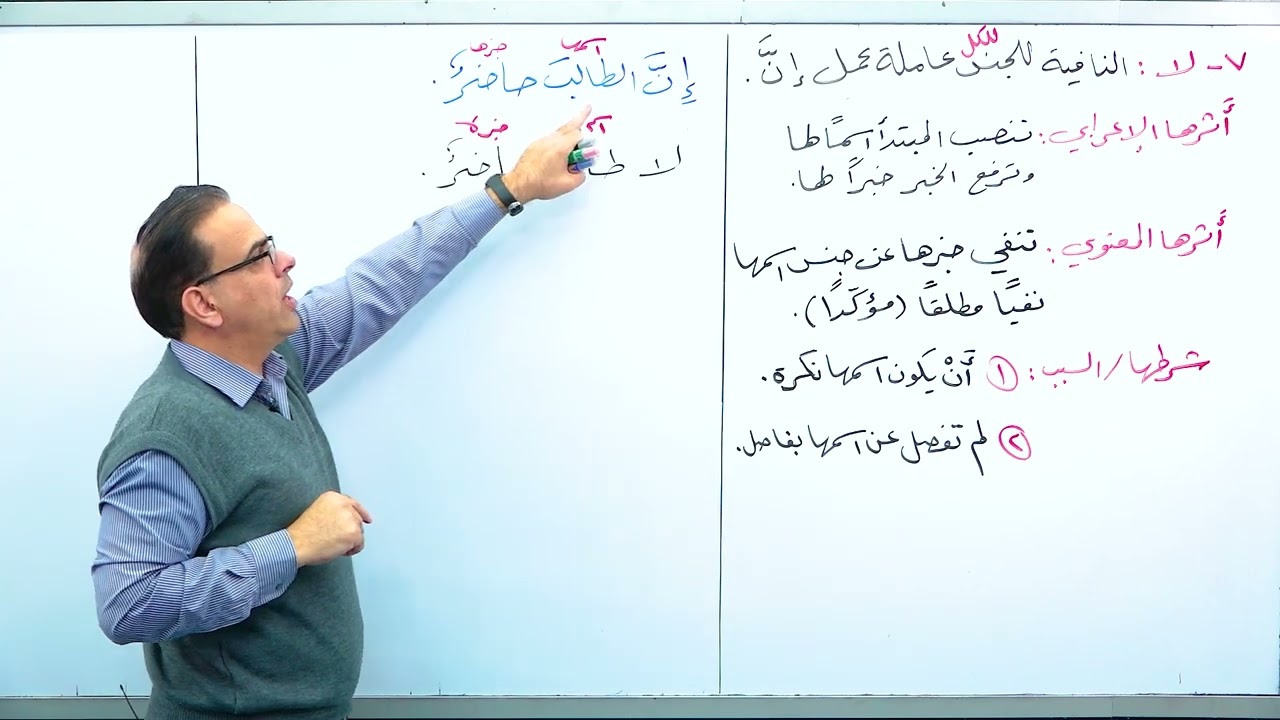 ٧- لا : النافية للجنس عاملة عمل إنَّ .
للكل
أثرها الإعرابي : تنصب المبتدأ اسمًا لها
وترفع الخبر خبرًا لها.
أثرها المعنوي : تنفي خبرها عن جنس اسمها
نفيًا مطلقًا (مؤكّدًا) .
شرطها / السبب : ① أنْ يكون اسمها نكرة .
② لم تفصل عن اسمها بفاصل .
اسمها خبرها
إِنَّ الطالبَ حاضرٌ .
خبر لا
لا